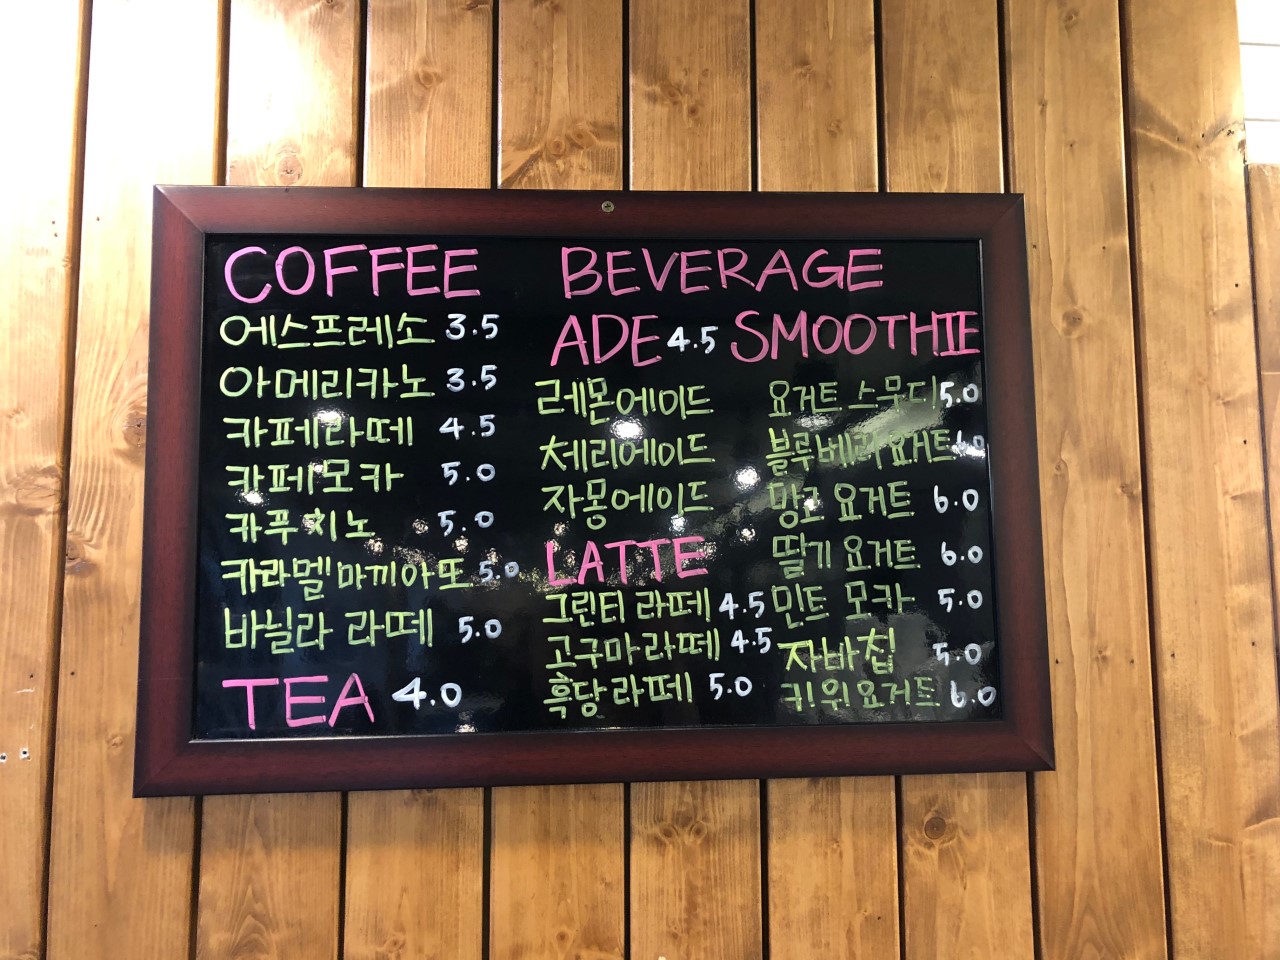 COFFEE
에스프레소 3.5
아메리카노 3.5
카페라떼 4.5
카페모카 5.0
카푸치노 5.0
카라멜마끼아또 5.0
바닐라 라떼 5.0
TEA 4.0
BEVERAGE
ADE 4.5
레몬에이드
체리에이드
자몽에이드
LATTE
그린티 라떼 4.5
고구마라떼 4.5
흑당라떼 5.0
SMOOTHIE
요거트 스무디 5.0
블루베리요거트 6.0
망고 요거트 6.0
딸기 요거트 6.0
민트 모카 5.0
자바칩 5.0
키위요거트 6.0